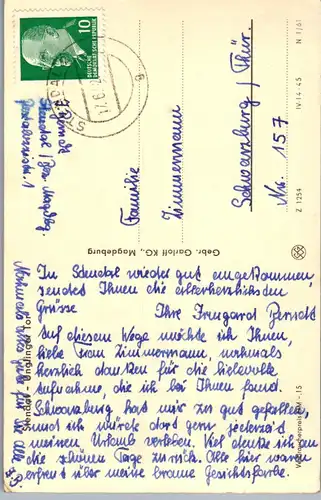 10
DEUTSCHE
DEMOKRATISCHE REPUBLIK
STENDAL
17.6.
g
Stendal / Bez. Magdbg.
Familie
Zimmermann
Schwarzburg / Thür.
Nr. 157
Gebr. Garloff KG., Magdeburg
Z 1254
IV-14-45
N 1/61
Stendal - Tangermünder Tor
In Stendal wieder gut angekommen,
sendet Ihnen die allerherzlichsten
Grüsse
Ihre Irmgard
Auf diesem Wege möchte ich Ihnen,
liebe Frau Zimmermann, nochmals
herzlich danken für die liebevolle
Aufnahme, die ich bei Ihnen fand.
Schwarzburg hat mir so gut gefallen,
und ich würde dort gern jederzeit
meinen Urlaub verleben. Viel denke ich an
die schönen Tage zurück. Alle hier waren
erfreut über meine braune Gesichtsfarbe.
Nochmals alles Gute für Sie alle